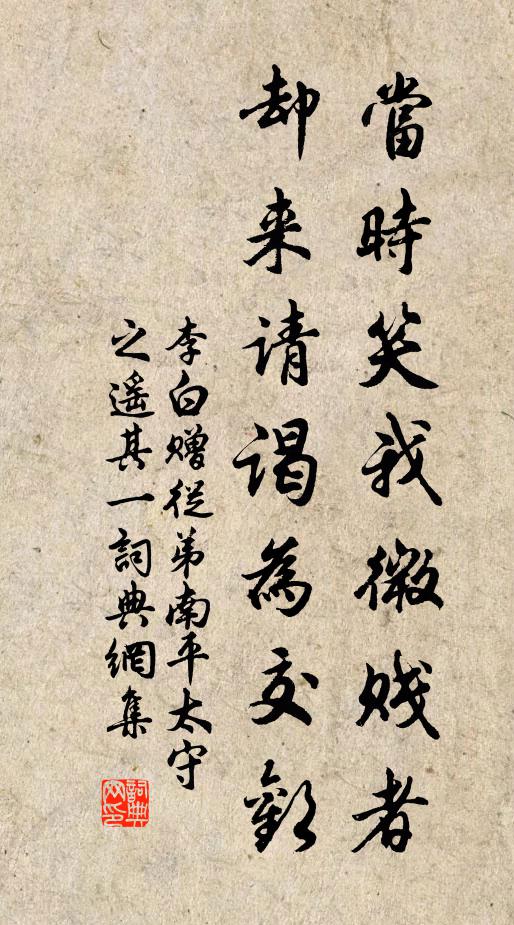 當時笑我微賤者
却来請謁為交歡
李白贈從弟南平太守
之遥其一詞典網集
詞典
网印